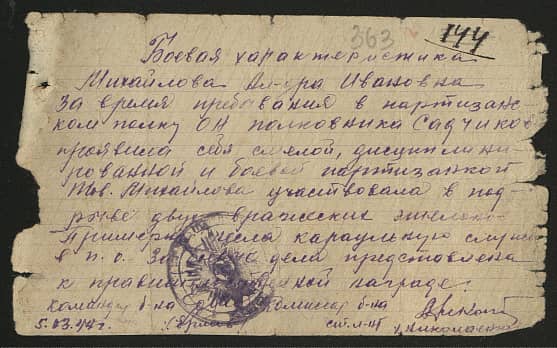 363 144
Боевая характеристика
Михайлова Ал-дра Ивановна
За время пребывания в партизанс-
ком полку ОН полковника Садчиков
проявила себя смелой, дисциплини-
рованной и боевой партизанкой
Тов. Михайлова участвовала в под-
рыве двух вражеских эшелоно-
Примерно несла караульную служ
в п.о. За дела представлена
к правительственной награде.
командир б-на комиссар б-на
5.03.44г. ст. л-нт